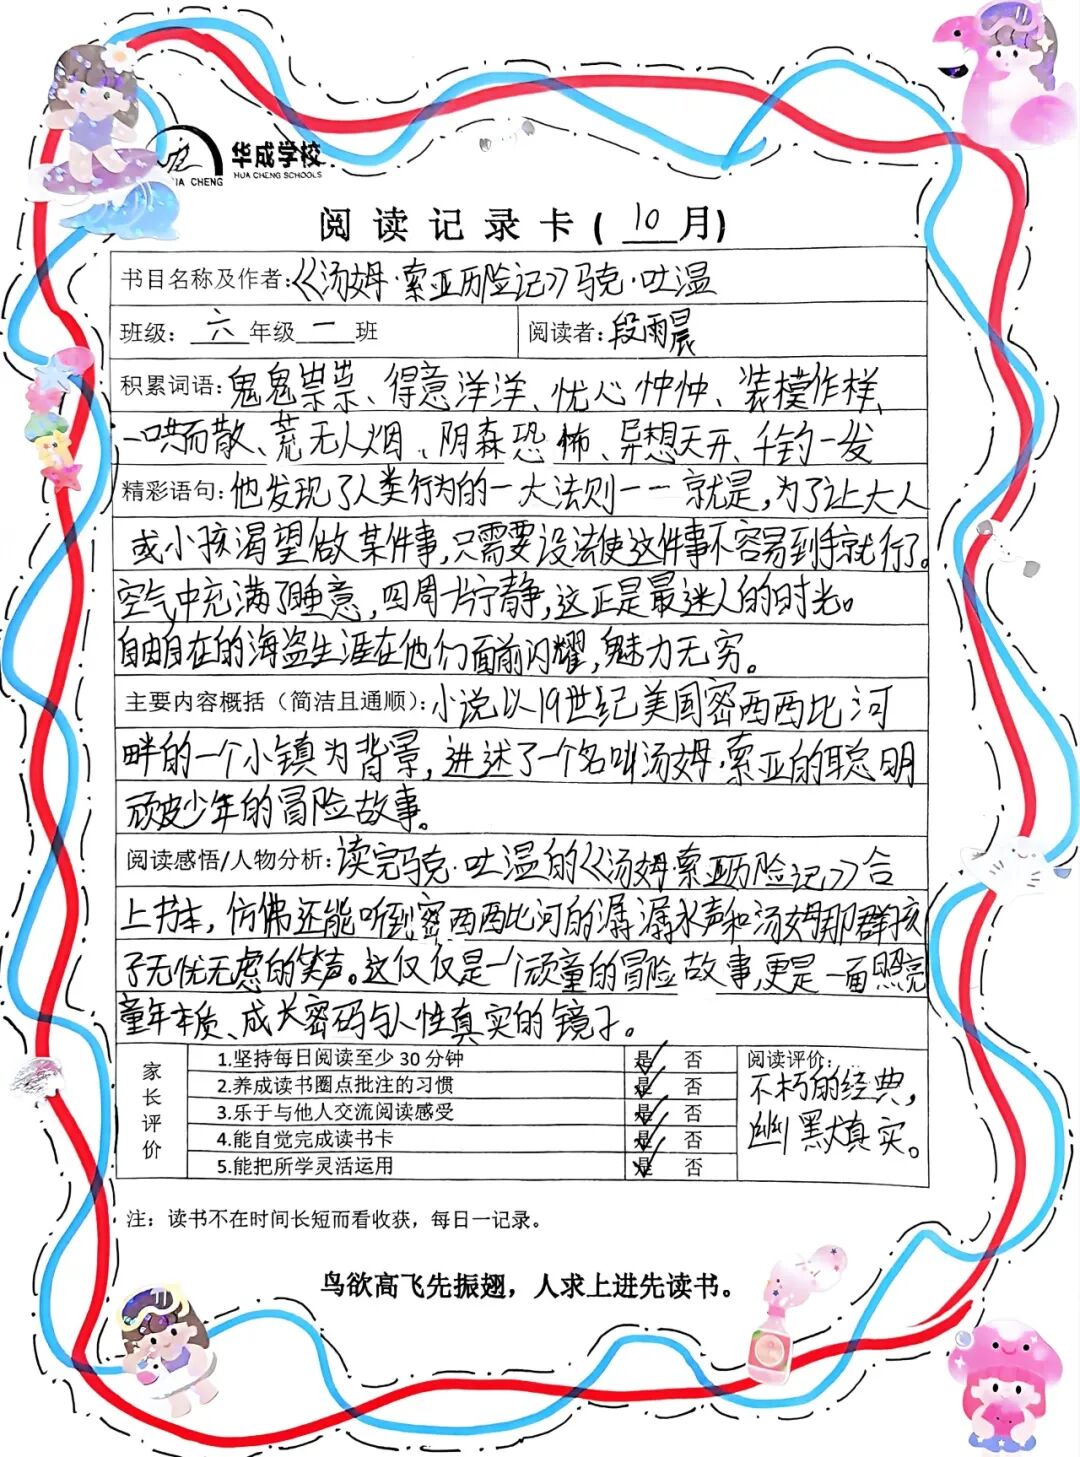 华成学校
HUA CHENG SCHOOLS
IA CHENG
阅读记录卡(10月)
书目名称及作者:《汤姆·索亚历险记》马克·吐温
班级: 六年级一班 阅读者: 段雨晨
积累词语: 鬼鬼祟祟、得意洋洋、忧心忡忡、装模作样、
一哄而散、荒无人烟、阴森恐怖、异想天开、千钧一发
精彩语句: 他发现了人类行为的一大法则——就是,为了让大人
或小孩渴望做某件事,只需要设法使这件事不容易到手就行了。
空气中充满了睡意,四周一片宁静,这正是最迷人的时光。
自由自在的海盗生涯在他们面前闪耀,魅力无穷。
主要内容概括(简洁且通顺): 小说以19世纪美国密西西比河
畔的一个小镇为背景,讲述了一个名叫汤姆·索亚的聪明
顽皮少年的冒险故事。
阅读感悟/人物分析: 读完马克·吐温的《汤姆·索亚历险记》合
上书本,仿佛还能听到密西西比河的潺潺水声和汤姆那群孩
子无忧无虑的笑声。这仅仅是一个顽童的冒险故事,更是一面照亮
童年本质、成长密码与人性真实的镜子。
家长评价
1.坚持每日阅读至少30分钟 是 否
2.养成读书圈点批注的习惯 是 否
3.乐于与他人交流阅读感受 是 否
4.能自觉完成读书卡 是 否
5.能把所学灵活运用 是 否
阅读评价:
不朽的经典,
幽默真实。
注: 读书不在时间长短而看收获,每日一记录。
鸟欲高飞先振翅,人求上进先读书。